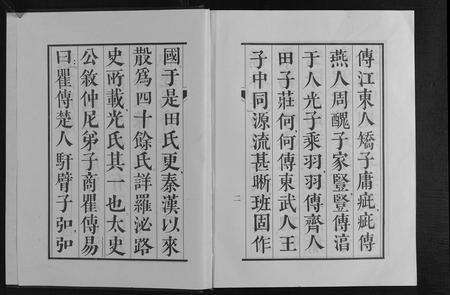 國于是田氏更秦漢以來
散爲四十餘氏詳羅泌路
史所載光氏其一也太史
公敘仲尼弟子商瞿傳易
曰瞿傳楚人馯臂子弘弘
傳江東人矯子庸疵疵傳
燕人周醜子家豎豎傳湻
于人光子乘羽羽傳齊人
田子莊何何傳東武人王
子中同源流甚晰班固作
二